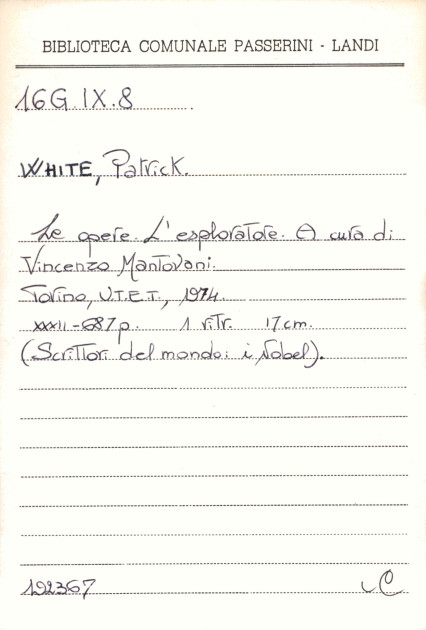 BIBLIOTECA COMUNALE PASSERINI - LANDI
16G.IX.8
WHITE, Patrick.
Le opere. L'esploratore. A cura di
Vincenzo Mantovani.
Torino, U.T.E.T., 1974.
XXXII-687p. 1 ritr. 17cm.
(Scrittori del mondo: i Nobel).
192367